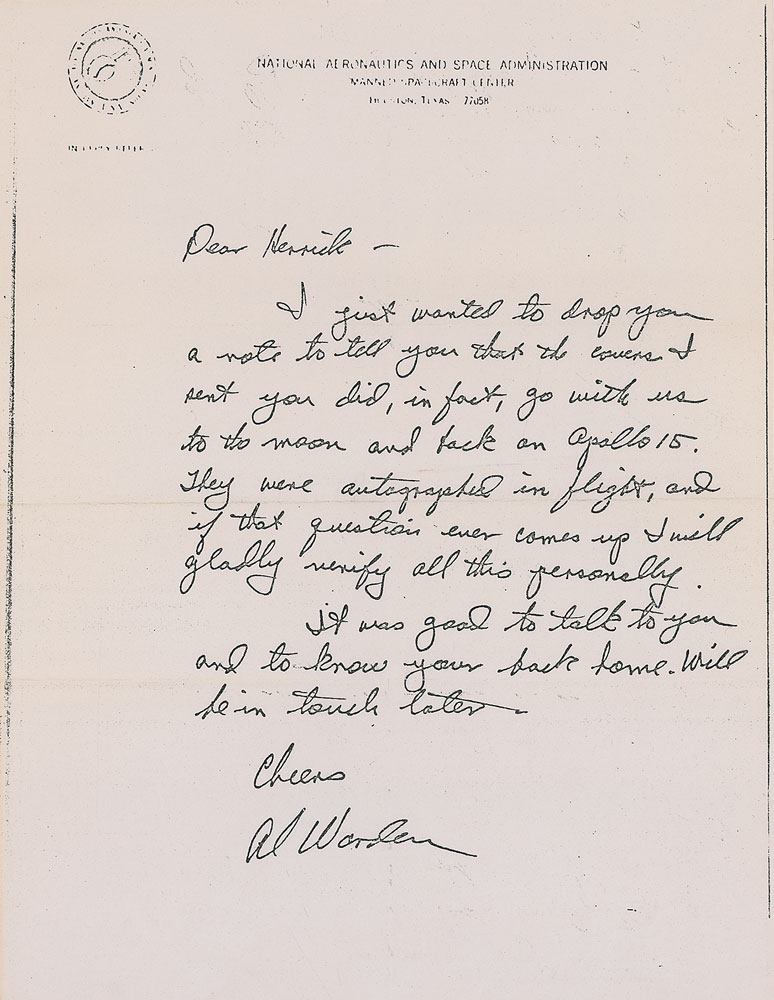 NATIONAL AERONAUTICS AND SPACE ADMINISTRATION
MANNED SPACECRAFT CENTER
HOUSTON, TEXAS 77058
IN REPLY REFER
Dear Herrick -
I just wanted to drop you
a note to tell you that the covers I
sent you did, in fact, go with us
to the moon and back on Apollo 15.
They were autographed in flight, and
if that question ever comes up I will
gladly verify all this personally.
It was good to talk to you
and to know your back home. Will
be in touch later -
Cheers
Al Worden